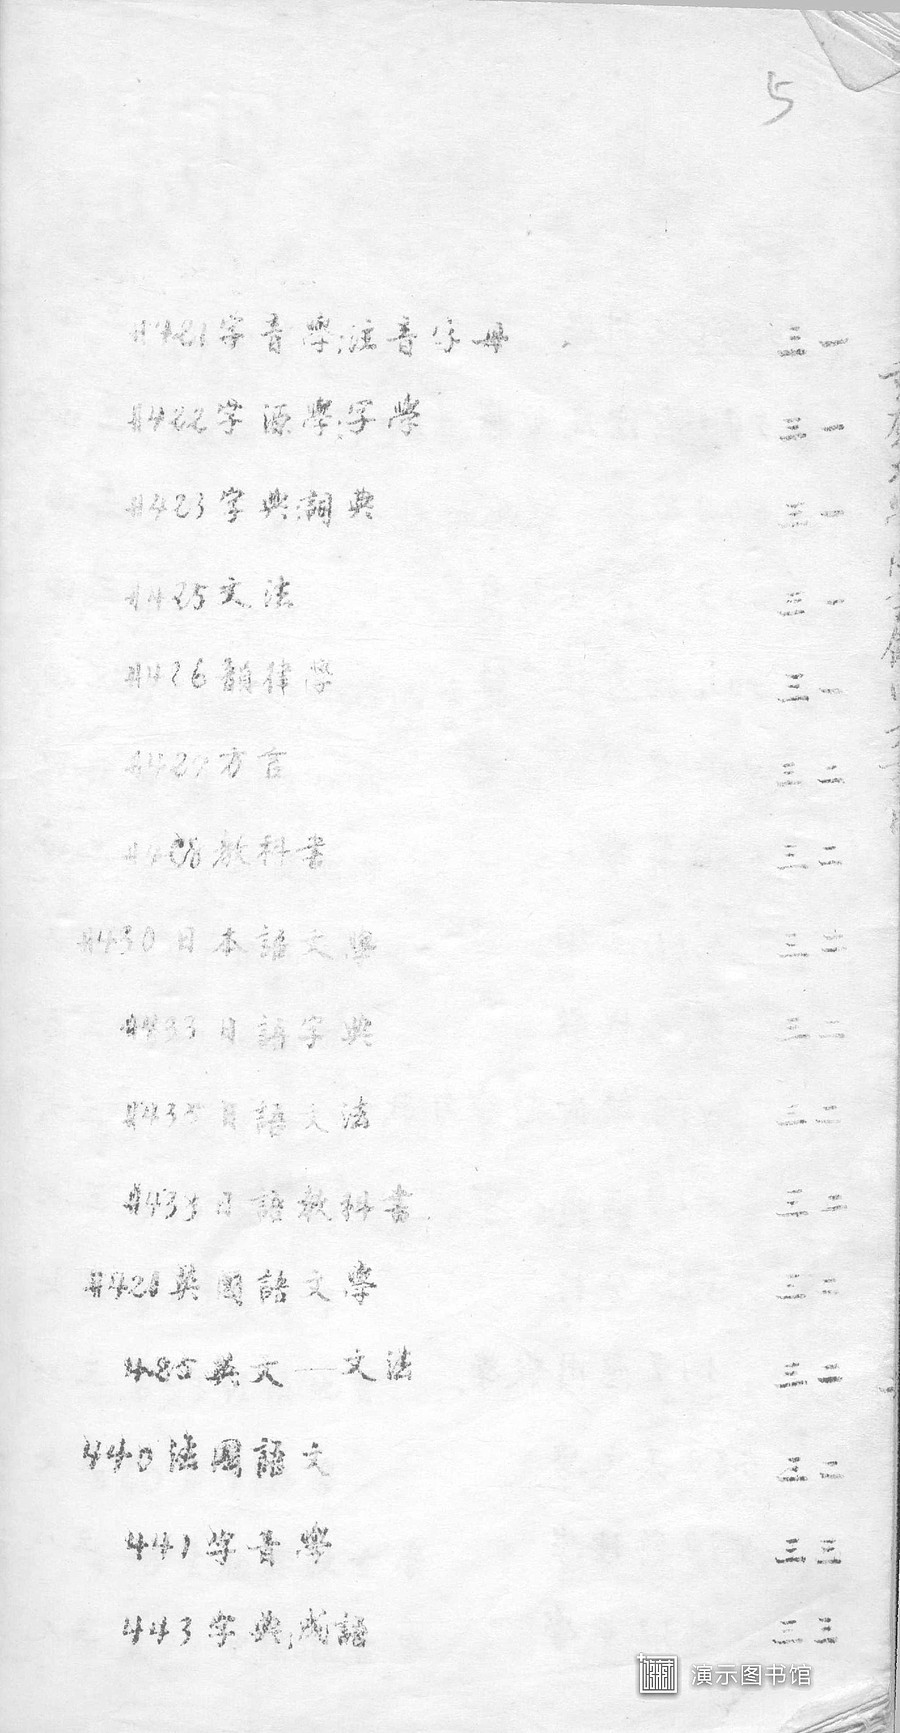 5
#421字音學;注音字母 三一
#422字源學;字學 三一
#423字典;詞典 三一
#425文法 三一
#426韻律學 三一
#427方言 三二
#428教科書 三二
#430日本語文學 三二
#433日語字典 三二
#435日語文法 三二
#435日語教科書 三二
#420英國語文學 三二
485英文——文法 三二
440法國語文 三二
441字音學 三三
443字典;成語 三三
演示图书馆